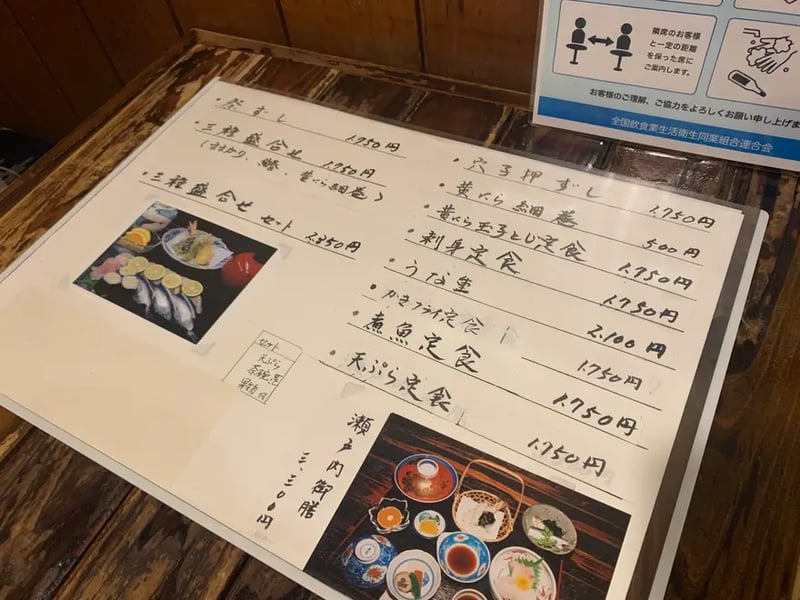 ・祭ずし 1.750円
・三種盛合せ 1.750円
(ままかり、鰆、黄にら細巻)
・三種盛合せセット 2.350円
セット
天ぷら
茶碗蒸
果物付
・穴子押ずし 1.750円
・黄にら細巻 500円
・黄にら玉子とじ定食 1.750円
・刺身定食 1.750円
・うな重 2.100円
・かきフライ定食 1.750円
・煮魚定食 1.750円
・天ぷら定食 1.750円
瀬戸内御膳
三、三〇〇円
隣席のお客様
と一定の距離
を保った席に
ご案内します。
お客様のご理解、ご協力をよろしくお願い申し上げま
全国飲食業生活衛生同業組合連合会